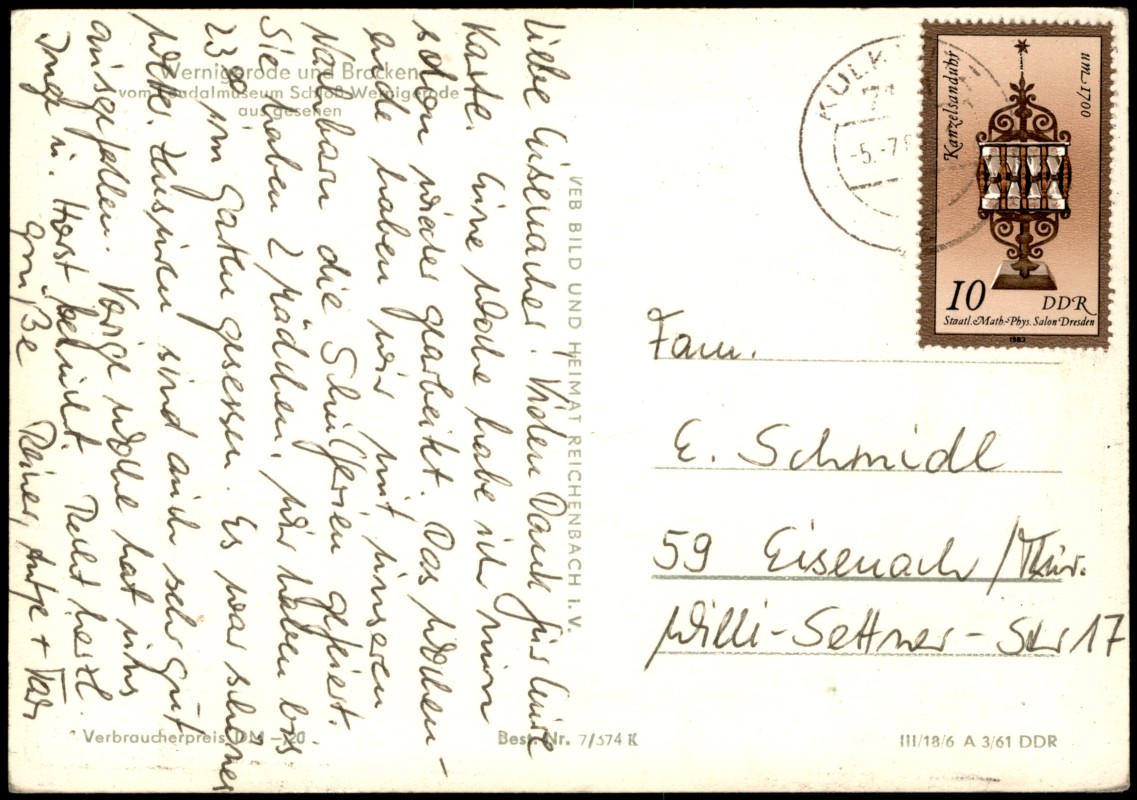 Wernigerode und Brocken
vom Feudalmuseum Schloß Wernigerode
aus gesehen
Liebe Eisenacher! Vielen Dank für Eure
Karte. Eine Woche habe ich nun
schon wieder gearbeitet. Das Wochen-
ende haben wir mit unseren
Nachbarn die Schulferien gefeiert.
Sie haben 2 Mädchen, wir haben bis
23⁰⁰ im Garten gesessen. Es war schönes
Wetter. Zensuren sind auch sehr gut
ausgefallen. Vorige Woche hat uns
Inge u. Horst besucht. Recht herzl.
Grüße Reiner, Antje +
VEB BILD UND HEIMAT REICHENBACH I. V.
Verbraucherpreis DM –.20
Best. Nr. 7/574 K
III/18/6 A 3/61 DDR
-5.-7.
Kanzelsanduhr
um 1700
10 DDR
Staatl. Math.-Phys. Salon Dresden
1983
Fam.
E. Schmidt
59 Eisenach/Thür.
Willi-Settner-Str 17